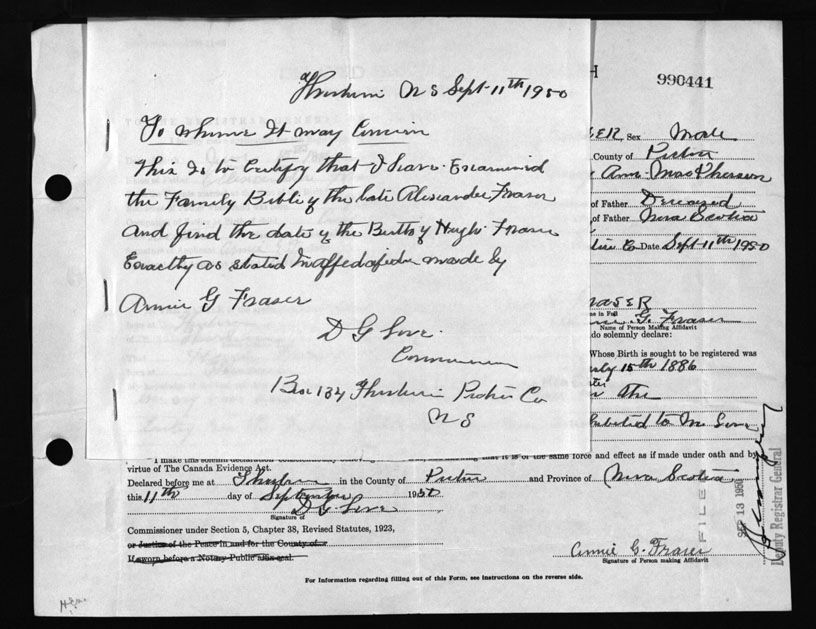 N S Sept 11th 1950
To whome It may
This Is to Certify that I have Examined
the Family Bible of the late Alexander Fraser
And find the date of the Birth of Hugh Fraser
Exactly as stated In made by
Annie G Fraser
D G
Box 134 Co
N S
990441
ER Sex Male
County of Pictou
Ann MacPherson
of Father Deceased
of Father Nova Scotia
Co Date Sept 11th 1950
RASER
me in Full
G. Fraser
Name of Person Making Affidavit
do solemnly declare:
Whose Birth is sought to be registered was
15th 1886
the
to
I make this solemn declaration
ing that it is of the same force and effect as if made under oath and by
virtue of The Canada Evidence Act.
Declared before me at in the County of Pictou and Province of Nova Scotia
this 11th day of September 1950
D G
Signature of
Commissioner under Section 5, Chapter 38, Revised Statutes, 1923,
or Justice of the Peace in and for the County of
If sworn before a Notary Public affix seal.
Annie G. Fraser
Signature of Person making Affidavit
For Information regarding filling out of this Form, see instructions on the reverse side.
FILE
SEP 13 1950
Deputy Registrar General